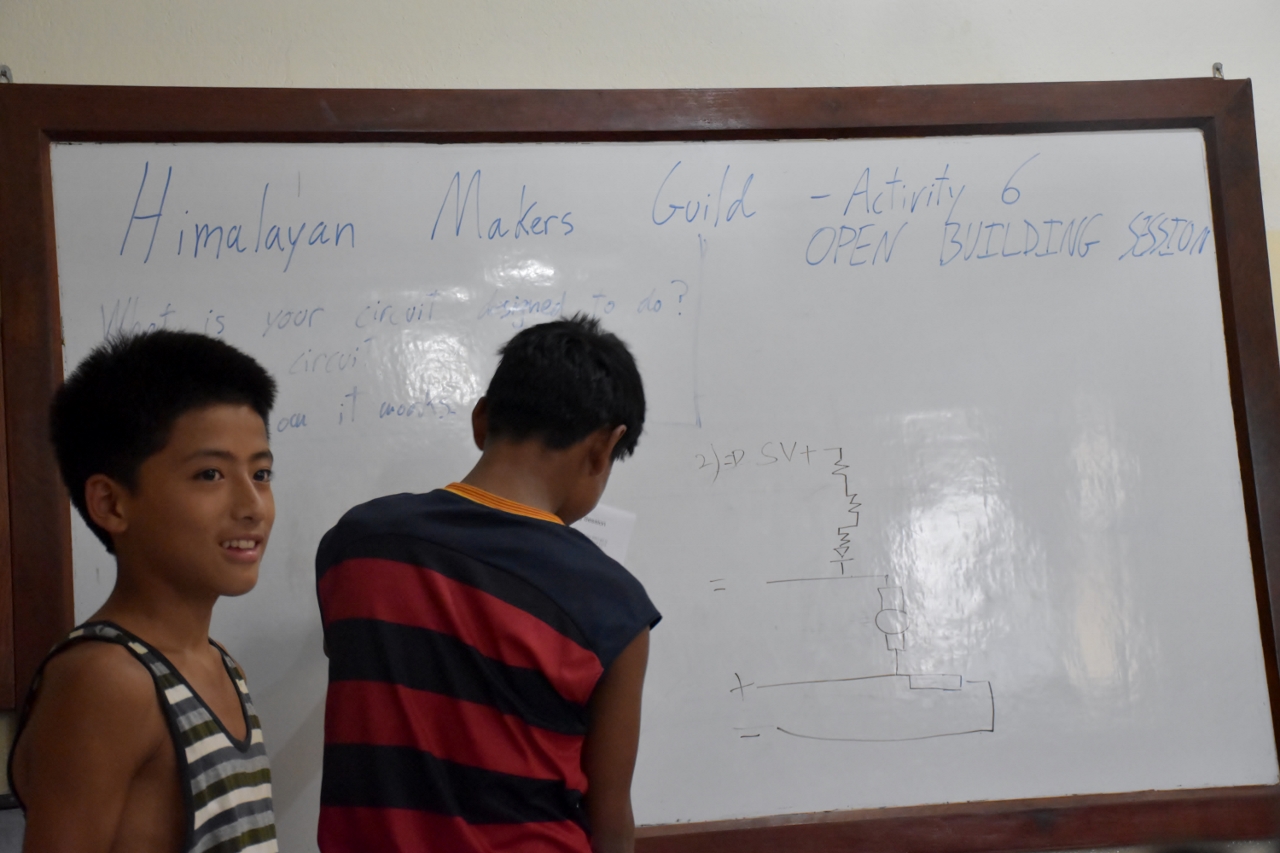 Himalayan Makers Guild - Activity 6
OPEN BUILDING SESSION
What is your circuit dsigned to do?
circuit
it works.
2)=D 5V+
=
+
=